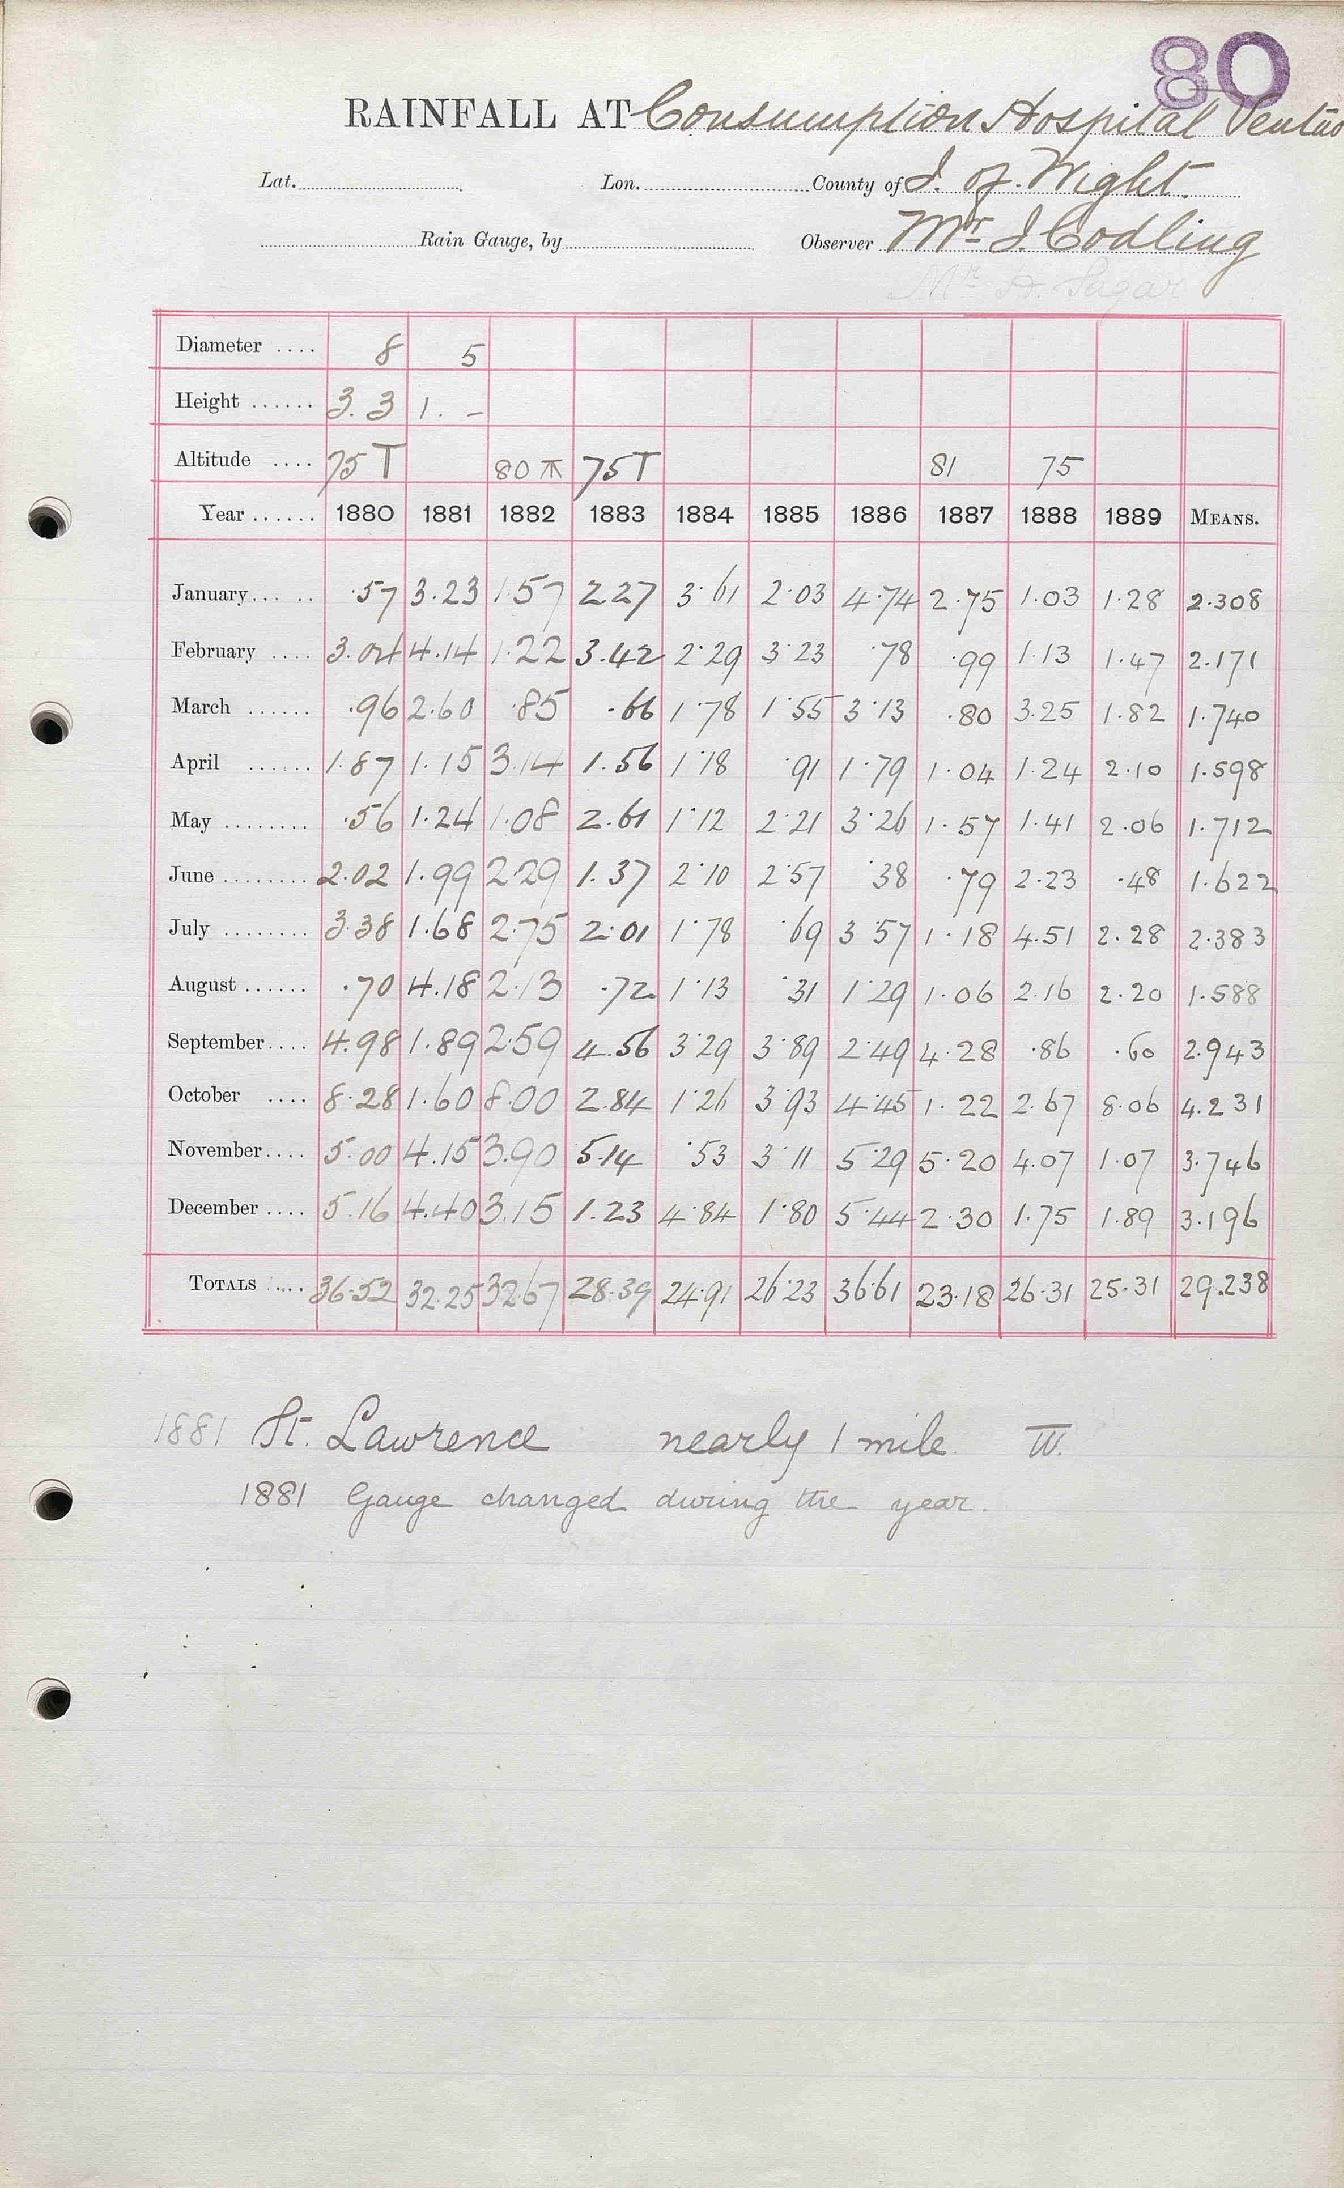 80
RAINFALL AT Consumption Hospital Ventno
Lat. Lon. County of I. of. Wight.
Rain Gauge, by Observer Mr. J. Codling
Mr. H. Sagar
Diameter .... 8 5
Height ...... 3.3 1. -
Altitude .... 75 T 80 75T 81 75
Year ...... 1880 1881 1882 1883 1884 1885 1886 1887 1888 1889 MEANS.
January... .. .57 3.23 1.57 2.27 3.61 2.03 4.74 2.75 1.03 1.28 2.308
February .... 3.04 4.14 1.22 3.42 2.29 3.23 .78 .99 1.13 1.47 2.171
March ...... .96 2.60 .85 .66 1.78 1.55 3.13 .80 3.25 1.82 1.740
April ...... 1.87 1.15 3.14 1.56 1.18 .91 1.79 1.04 1.24 2.10 1.598
May ........ .56 1.24 1.08 2.61 1.12 2.21 3.26 1.57 1.41 2.06 1.712
June ........ 2.02 1.99 2.29 1.37 2.10 2.57 .38 .79 2.23 .48 1.622
July ........ 3.38 1.68 2.75 2.01 1.78 .69 3.57 1.18 4.51 2.28 2.383
August ...... .70 4.18 2.13 .72 1.13 .31 1.29 1.06 2.16 2.20 1.588
September.... 4.98 1.89 2.59 4.56 3.29 3.89 2.49 4.28 .86 .60 2.943
October .... 8.28 1.60 8.00 2.84 1.26 3.93 4.45 1.22 2.67 8.06 4.231
November.... 5.00 4.15 3.90 5.14 .53 3.11 5.29 5.20 4.07 1.07 3.746
December .... 5.16 4.40 3.15 1.23 4.84 1.80 5.44 2.30 1.75 1.89 3.196
TOTALS .... 36.52 32.25 32.67 28.39 24.91 26.23 36.61 23.18 26.31 25.31 29.238
1881 St. Lawrence nearly 1 mile W.
1881 Gauge changed during the year.